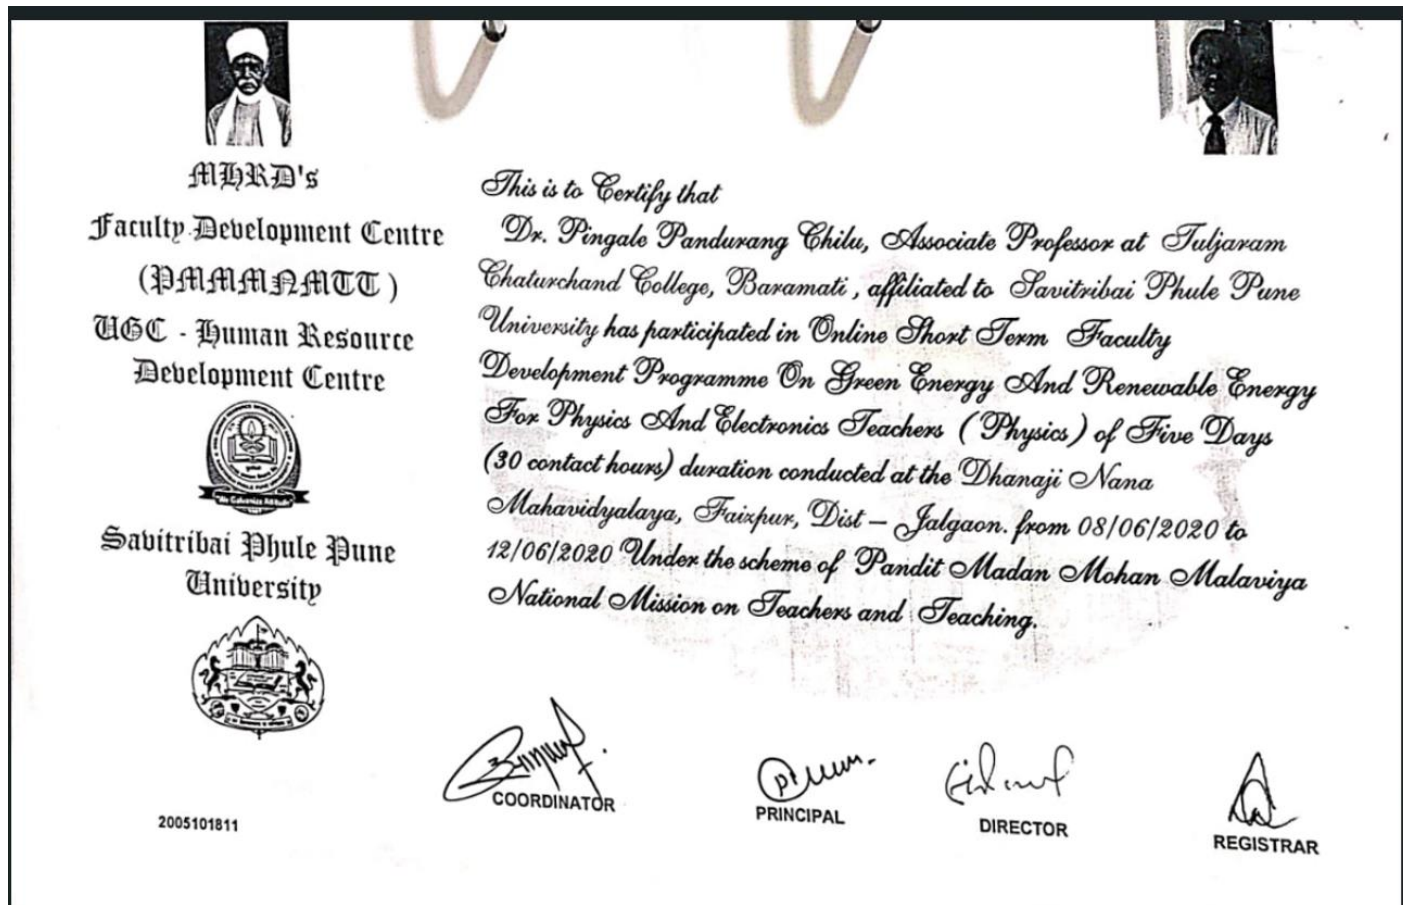 MHRD's
Faculty Development Centre
(PMMMNMTT)
UGC - Human Resource
Development Centre
Savitribai Phule Pune
University
2005101811
This is to Certify that
Dr. Pingale Pandurang Chilu, Associate Professor at Tuljaram
Chaturchand College, Baramati, affiliated to Savitribai Phule Pune
University has participated in Online Short Term Faculty
Development Programme On Green Energy And Renewable Energy
For Physics And Electronics Teachers (Physics) of Five Days
(30 contact hours) duration conducted at the Dhanaji Nana
Mahavidyalaya, Faizpur, Dist – Jalgaon. from 08/06/2020 to
12/06/2020 Under the scheme of Pandit Madan Mohan Malaviya
National Mission on Teachers and Teaching.
COORDINATOR
PRINCIPAL
DIRECTOR
REGISTRAR